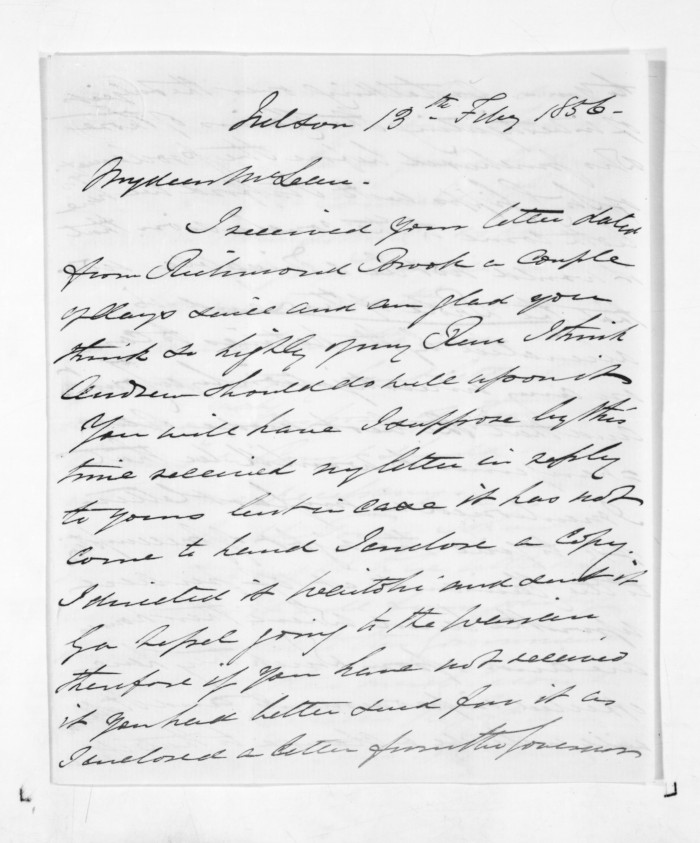 Nelson 13th Feby 1856-
My dear McLean.
I received your letter dated
from Richmond Brook a couple
of days since and am glad you
think so highly of my Run I think
Andrew should do well upon it
You will have I suppose by this
time received my letter in reply
to yours but in case it has not
come to hand I enclose a copy
I directed it Waitohi and sent it
by a vessel going to the Wairau
therefore if you have not received
it you had better send for it as
I enclosed a letter from the Governor